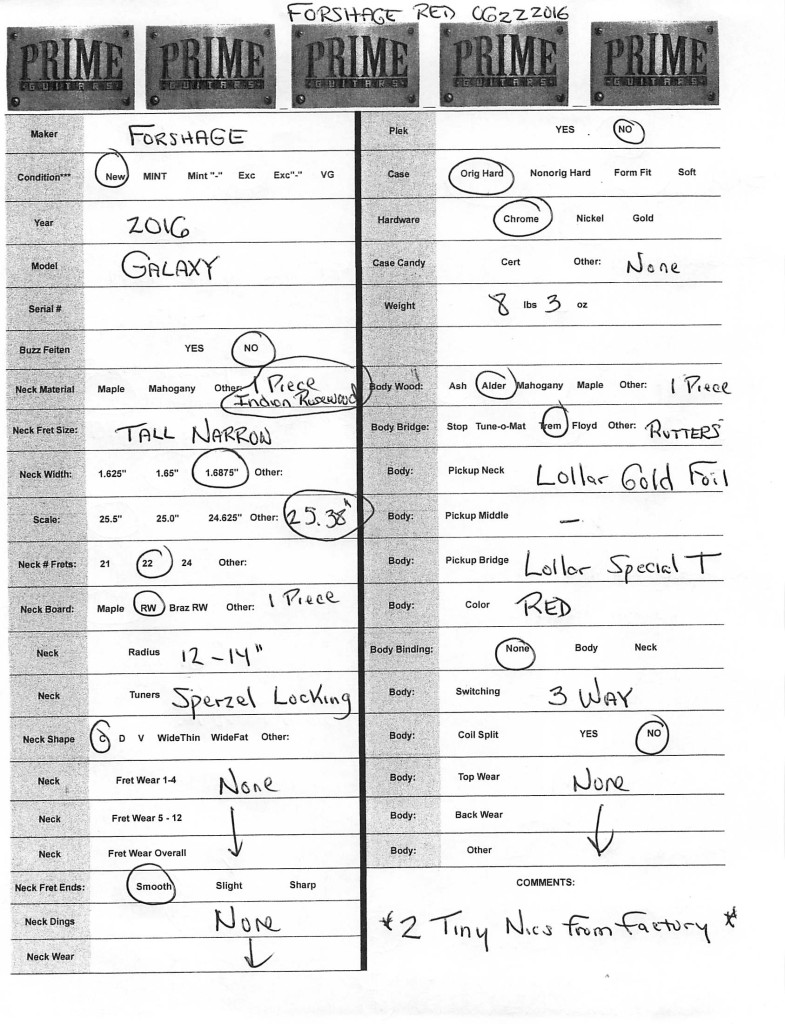 FORSHAGE RED 06222016
PRIME GUITARS PRIME GUITARS PRIME GUITARS PRIME GUITARS PRIME GUITARS
Maker FORSHAGE
Condition*** New MINT Mint "-" Exc Exc"-" VG
Year 2016
Model GALAXY
Serial #
Buzz Feiten YES NO
Neck Material Maple Mahogany Other: 1 Piece
Indian Rosewood
Neck Fret Size: TALL NARROW
Neck Width: 1.625" 1.65" 1.6875" Other:
Scale: 25.5" 25.0" 24.625" Other: 25.38"
Neck # Frets: 21 22 24 Other:
Neck Board: Maple RW Braz RW Other: 1 Piece
Neck Radius 12-14"
Neck Tuners Sperzel Locking
Neck Shape C D V WideThin WideFat Other:
Neck Fret Wear 1-4 None
Neck Fret Wear 5 - 12
Neck Fret Wear Overall
Neck Fret Ends: Smooth Slight Sharp
Neck Dings None
Neck Wear
Plek YES NO
Case Orig Hard Nonorig Hard Form Fit Soft
Hardware Chrome Nickel Gold
Case Candy Cert Other: None
Weight 8 lbs 3 oz
Body Wood: Ash Alder Mahogany Maple Other: 1 Piece
Body Bridge: Stop Tune-o-Mat Trem Floyd Other: RUTTERS
Body: Pickup Neck Lollar Gold Foil
Body: Pickup Middle —
Body: Pickup Bridge Lollar Special T
Body: Color RED
Body Binding: None Body Neck
Body: Switching 3 WAY
Body: Coil Split YES NO
Body: Top Wear None
Body: Back Wear
Body: Other
COMMENTS:
*2 Tiny Nics from Factory *